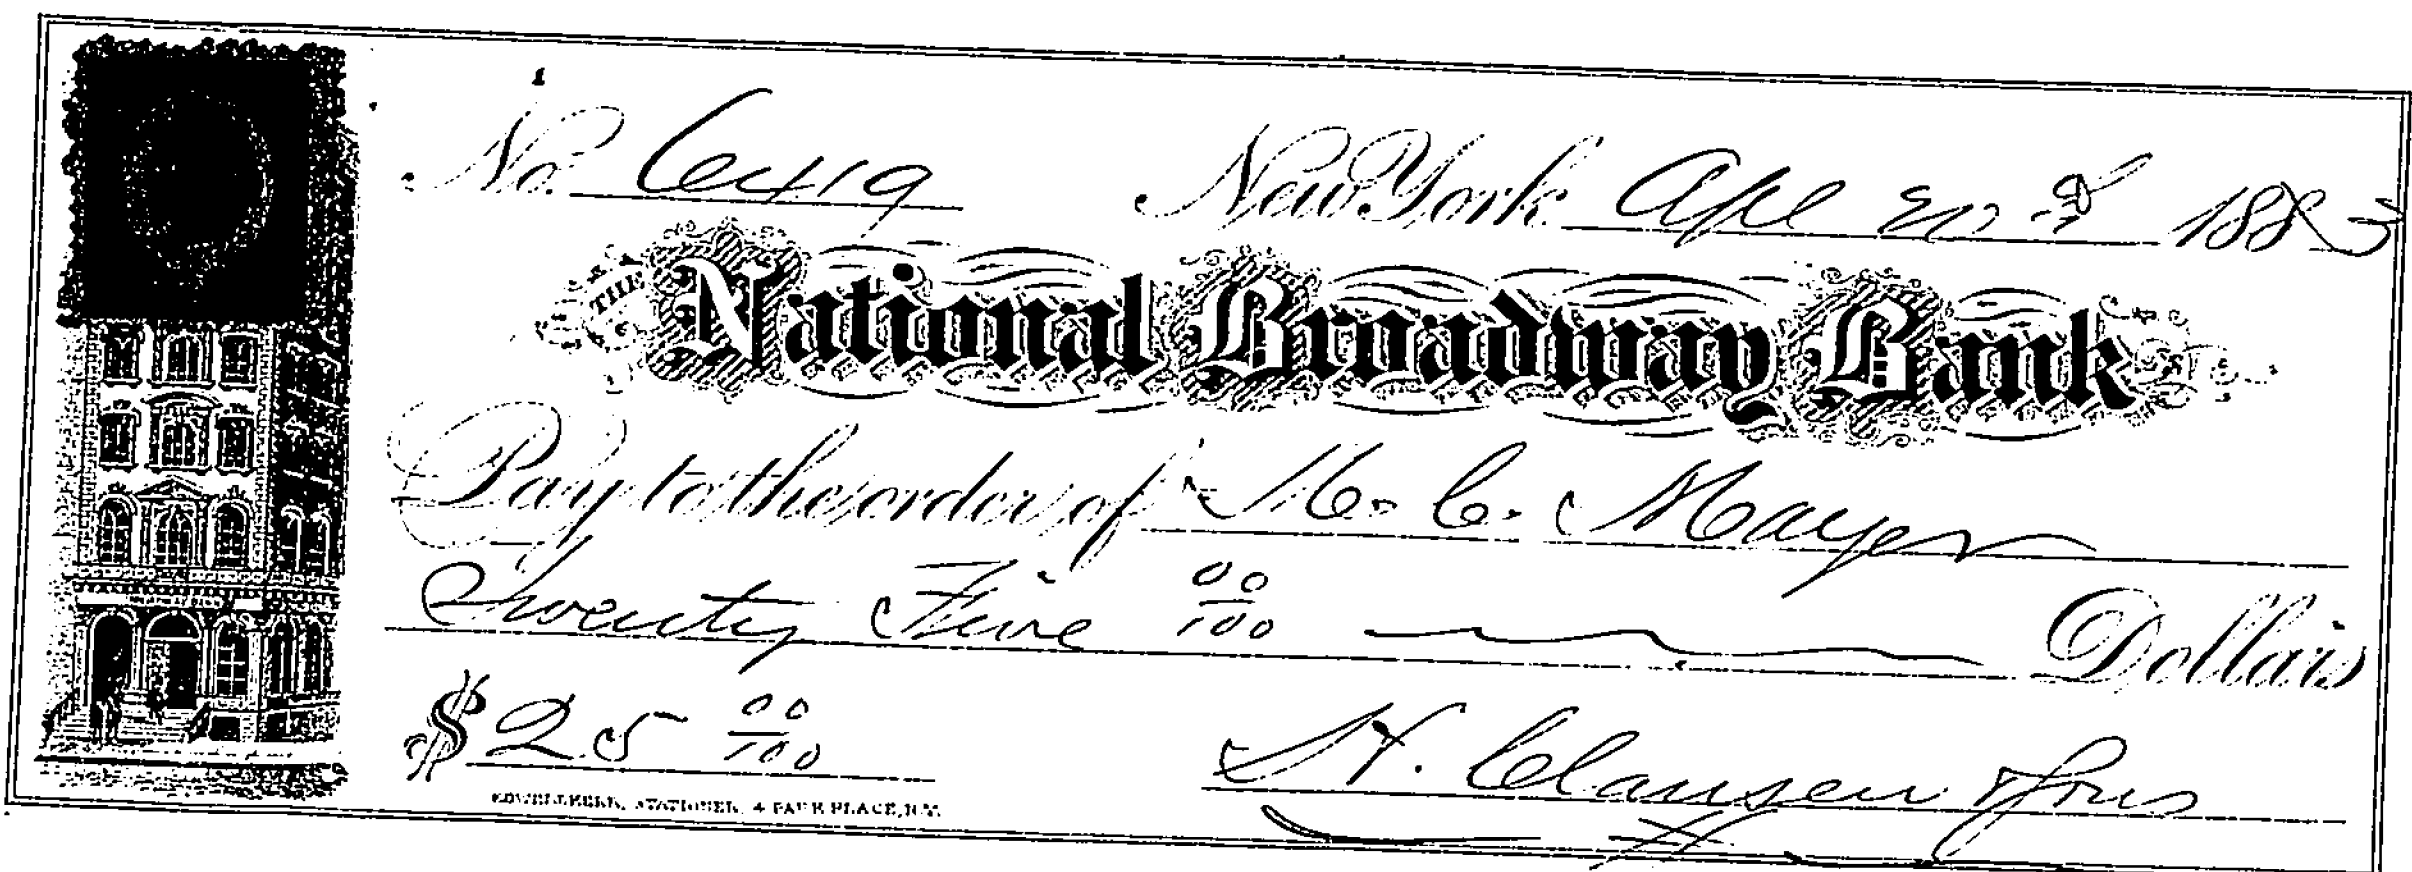 No. 6419 New York Apl 20 1883
THE National Broadway Bank
Pay to the order of M. C. Mayer
Twenty Five 00/100 Dollars
$25 00/100
H. Clausen & Sons
STATIONER, 4 PARK PLACE, N.Y.